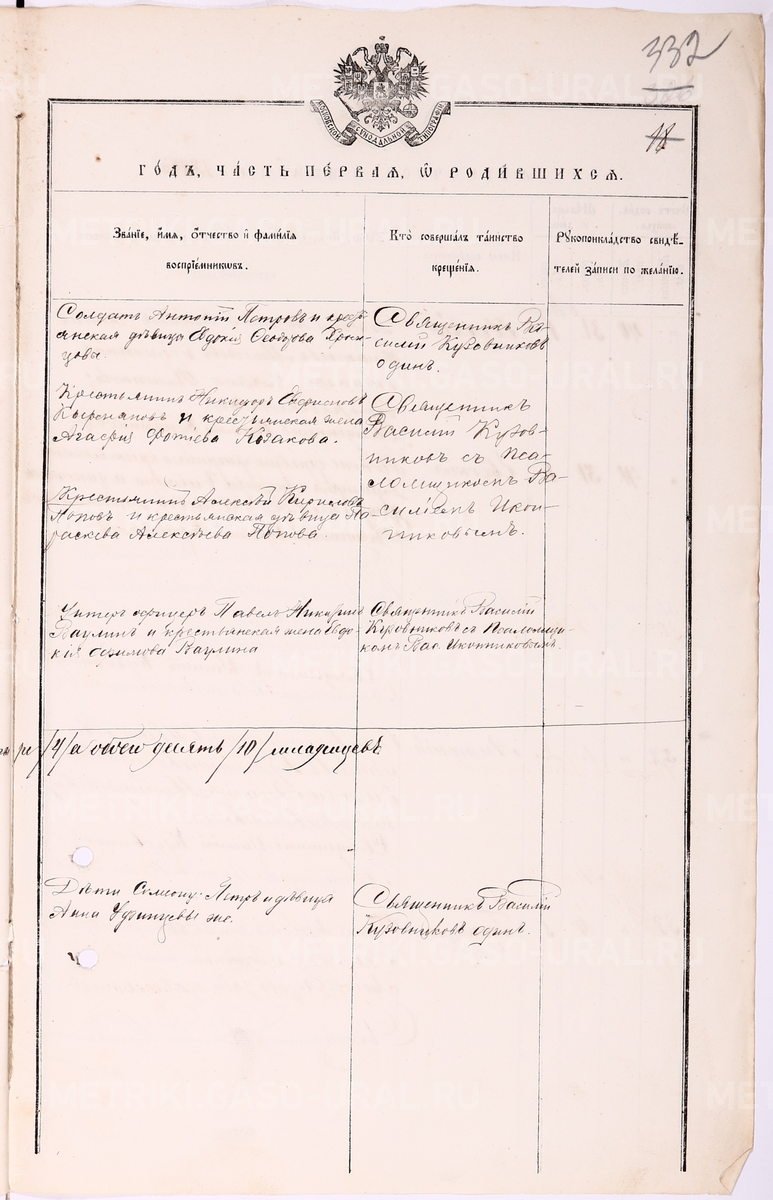 332
18
МОСКОВСКОЙ СѴНОДАЛЬНОЙ ТИПОГРАФІИ
го́дъ, ча́сть пе́рваѧ, ѡ҆ роди́вшихсѧ.
Зва́нїе, и҆́мѧ, ѻ҆́тчество и҆ фами́лїѧ
воспрїе́мникѡвъ.
Кто̀ соверша́лъ та́инство
креще́нїѧ.
Рꙋкоприкла́дство свидѣ́-
телей за́писи по жела́нїю.
Солдатъ Антоній Петровъ и кресть-
янская дѣвица Евдокія Ѳеодорова
Священникъ Ва-
силій Кузовниковъ
одинъ.
Крестьянинъ Никифоръ
и крестьянская жена
Агафія Фотіева Казакова.
Священникъ
Василій Кузов-
никовъ съ Пса-
ломщикомъ Ва-
силіемъ Икон-
никовымъ.
Крестьянинъ Алексѣй Кириловъ
Поповъ и крестьянская дѣвица Па-
раскева Алексѣева Попова.
Унтеръ офицеръ Павелъ
Ваулинъ и крестьянская жена Евдо-
кія Ефимова Ваулина
Священникъ Василій
Кузовниковъ съ Псаломщи-
комъ Вас. Иконниковымъ.
ре /4/ а всего десять /10/ младенцевъ.
Дѣти Симеону: Петръ и дѣвица
Анна же.
Священникъ Василій
Кузовниковъ одинъ.
METRIKI.GASO-URAL.RU